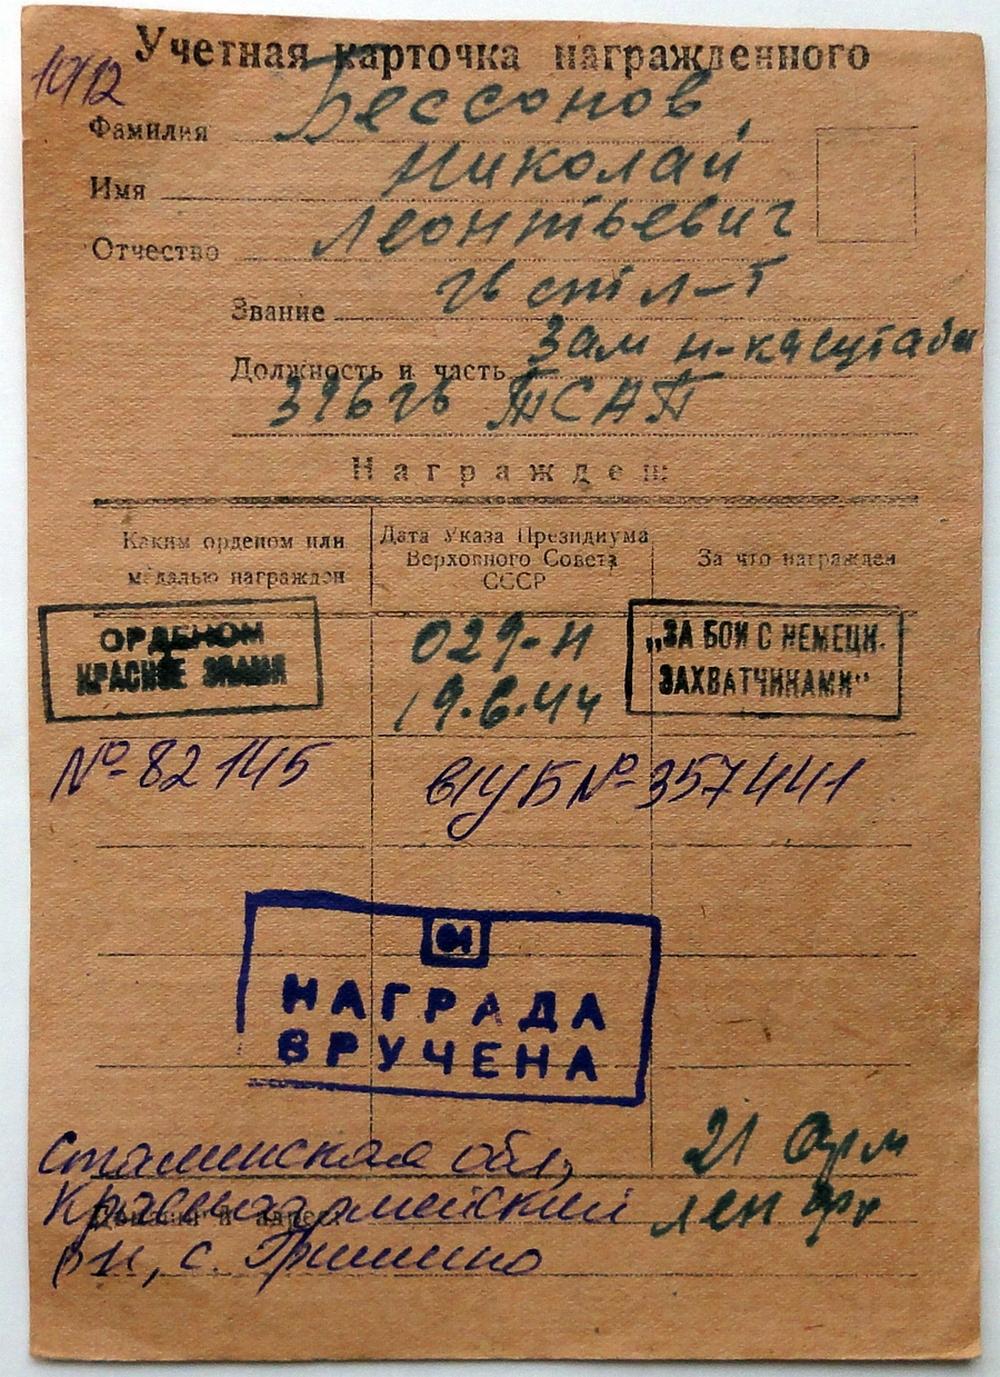 Учетная карточка награжденного
1912
Фамилия Бессонов
Имя Николай
Отчество Леонтьевич
Звание гв ст л-т
Должность и часть Зам н-ка штаба
396 гв ТСАП
Награжден
Каким орденом или медалью награжден
Дата Указа Президиума Верховного Совета СССР
За что награжден
ОРДЕНОМ
КРАСНОЕ ЗНАМЯ
029-н
19.6.44
„ЗА БОИ С НЕМЕЦК.
ЗАХВАТЧИКАМИ“
№-82145
в/у Б №357441
НАГРАДА
ВРУЧЕНА
Сталинская обл,
21 Арм
Домашний адрес
Красноармейский
лен фр
рн, с. Гришино